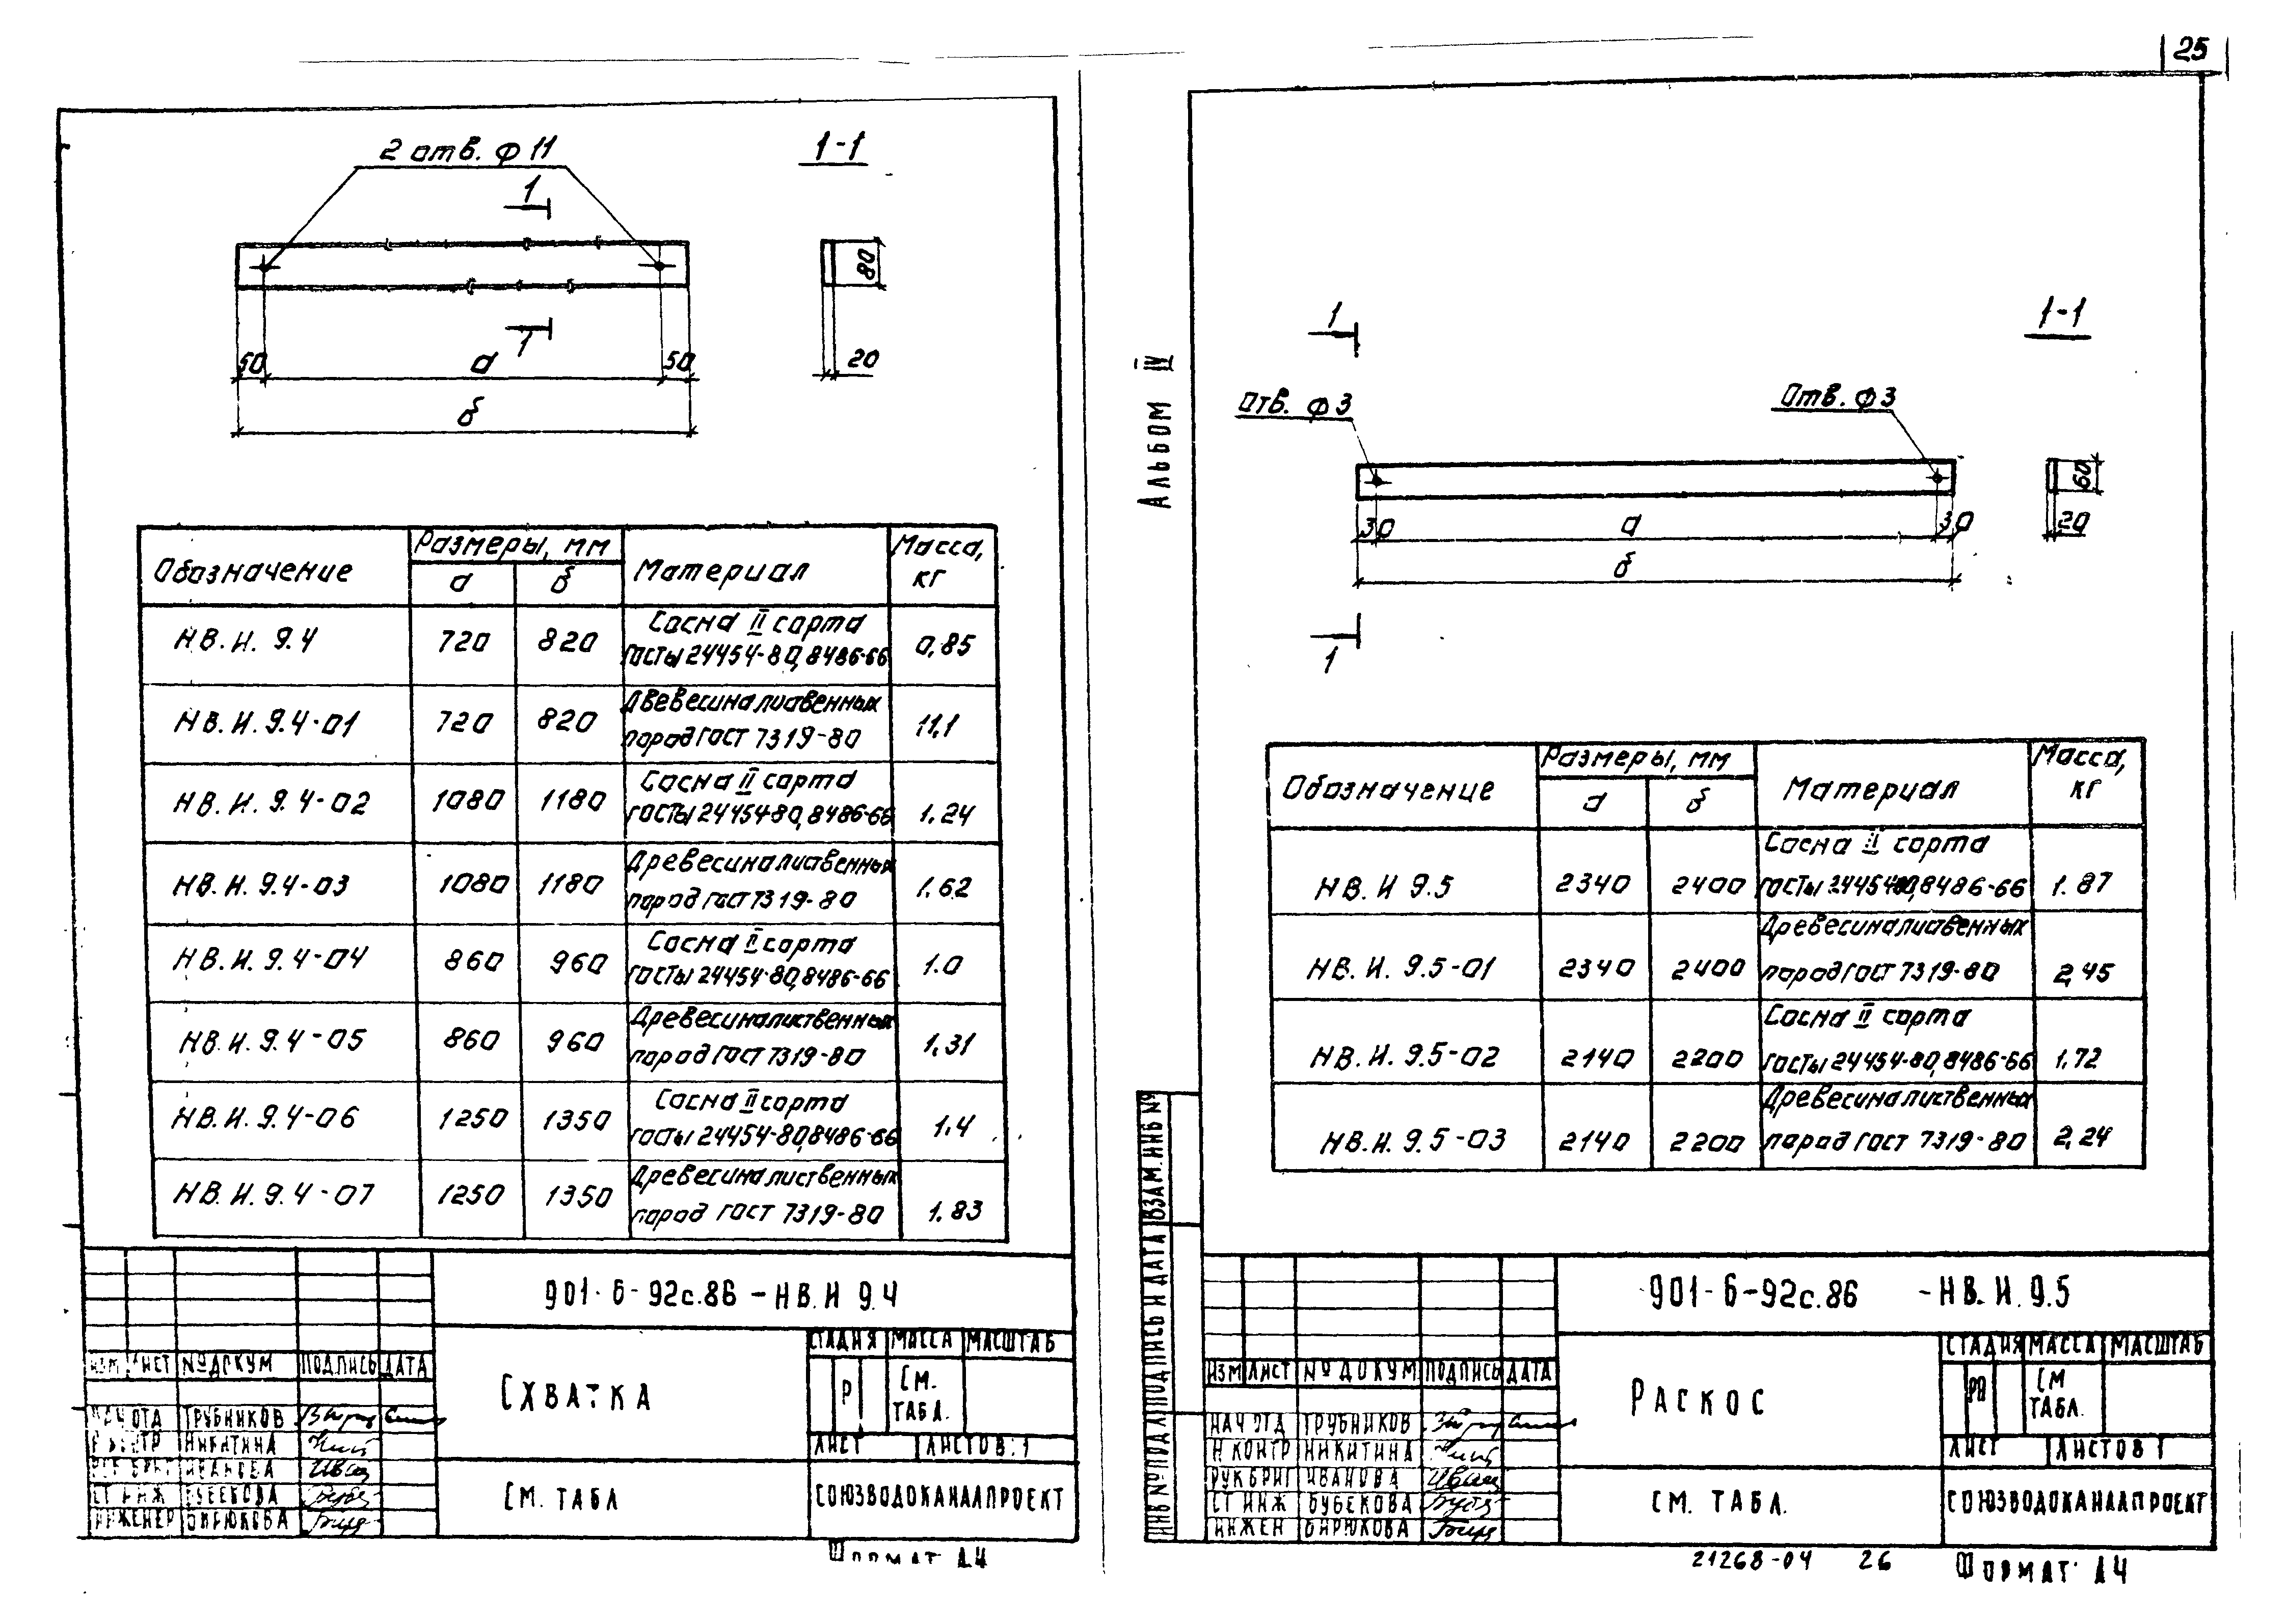 25
2 отв. ф 11
1-1
1
1
80
20
50
а
50
б
Обозначение
Размеры, мм
а
б
Материал
Масса, кг
НВ.И. 9.4 720 820 Сосна II сорта
Госты 24454-80, 8486-66 0,85
НВ.И. 9.4-01 720 820 Двевесина лиственных
пород Гост 7319-80 11,1
НВ.И. 9.4-02 1080 1180 Сосна II сорта
Госты 24454-80, 8486-66 1.24
НВ.И. 9.4-03 1080 1180 Древесина лиственных
пород Гост 7319-80 1.62
НВ.И. 9.4-04 860 960 Сосна II сорта
Госты 24454-80, 8486-66 1.0
НВ.И. 9.4-05 860 960 Древесина лиственных
пород Гост 7319-80 1,31
НВ.И. 9.4-06 1250 1350 Сосна II сорта
Госты 24454-80, 8486-66 1.4
НВ.И. 9.4-07 1250 1350 Древесина лиственных
пород Гост 7319-80 1.83
901-6-92с.86 - НВ.И 9.4
СТАДИЯ МАССА МАСШТАБ
ИЗМ ЛИСТ № ДОКУМ ПОДПИСЬ ДАТА
СХВАТКА
Р
СМ.
ТАБЛ.
НАЧ ОТД ТРУБНИКОВ
Н КОНТР НИКИТИНА
ЛИСТ ЛИСТОВ: 1
РУК БРИГ ИВАНОВА
СТ ИНЖ БУБЕКОВА
ИНЖЕНЕР БИРЮКОВА
СМ. ТАБЛ
СОЮЗВОДОКАНАЛПРОЕКТ
Формат А4
Альбом IV
1
1
1-1
Отв. ф 3
Отв. ф 3
60
20
30
а
30
б
Обозначение
Размеры, мм
а
б
Материал
Масса, кг
НВ.И 9.5 2340 2400 Сосна II сорта
Госты 24454-80, 8486-66 1.87
НВ.И. 9.5-01 2340 2400 Древесина лиственных
пород Гост 7319-80 2,45
НВ.И. 9.5-02 2140 2200 Сосна II сорта
Госты 24454-80, 8486-66 1.72
НВ.И. 9.5-03 2140 2200 Древесина лиственных
пород Гост 7319-80 2,24
ИНВ № ПОДЛ ПОДПИСЬ И ДАТА ВЗАМ. ИНВ №
901-6-92с.86 - НВ.И. 9.5
СТАДИЯ МАССА МАСШТАБ
ИЗМ ЛИСТ № ДОКУМ ПОДПИСЬ ДАТА
РАСКОС
СМ
ТАБЛ.
НАЧ ОТД ТРУБНИКОВ
Н КОНТР НИКИТИНА
ЛИСТ ЛИСТОВ 1
РУК БРИГ ИВАНОВА
СТ ИНЖ БУБЕКОВА
ИНЖЕН БИРЮКОВА
СМ. ТАБЛ.
СОЮЗВОДОКАНАЛПРОЕКТ
21268-04 26
Формат А4